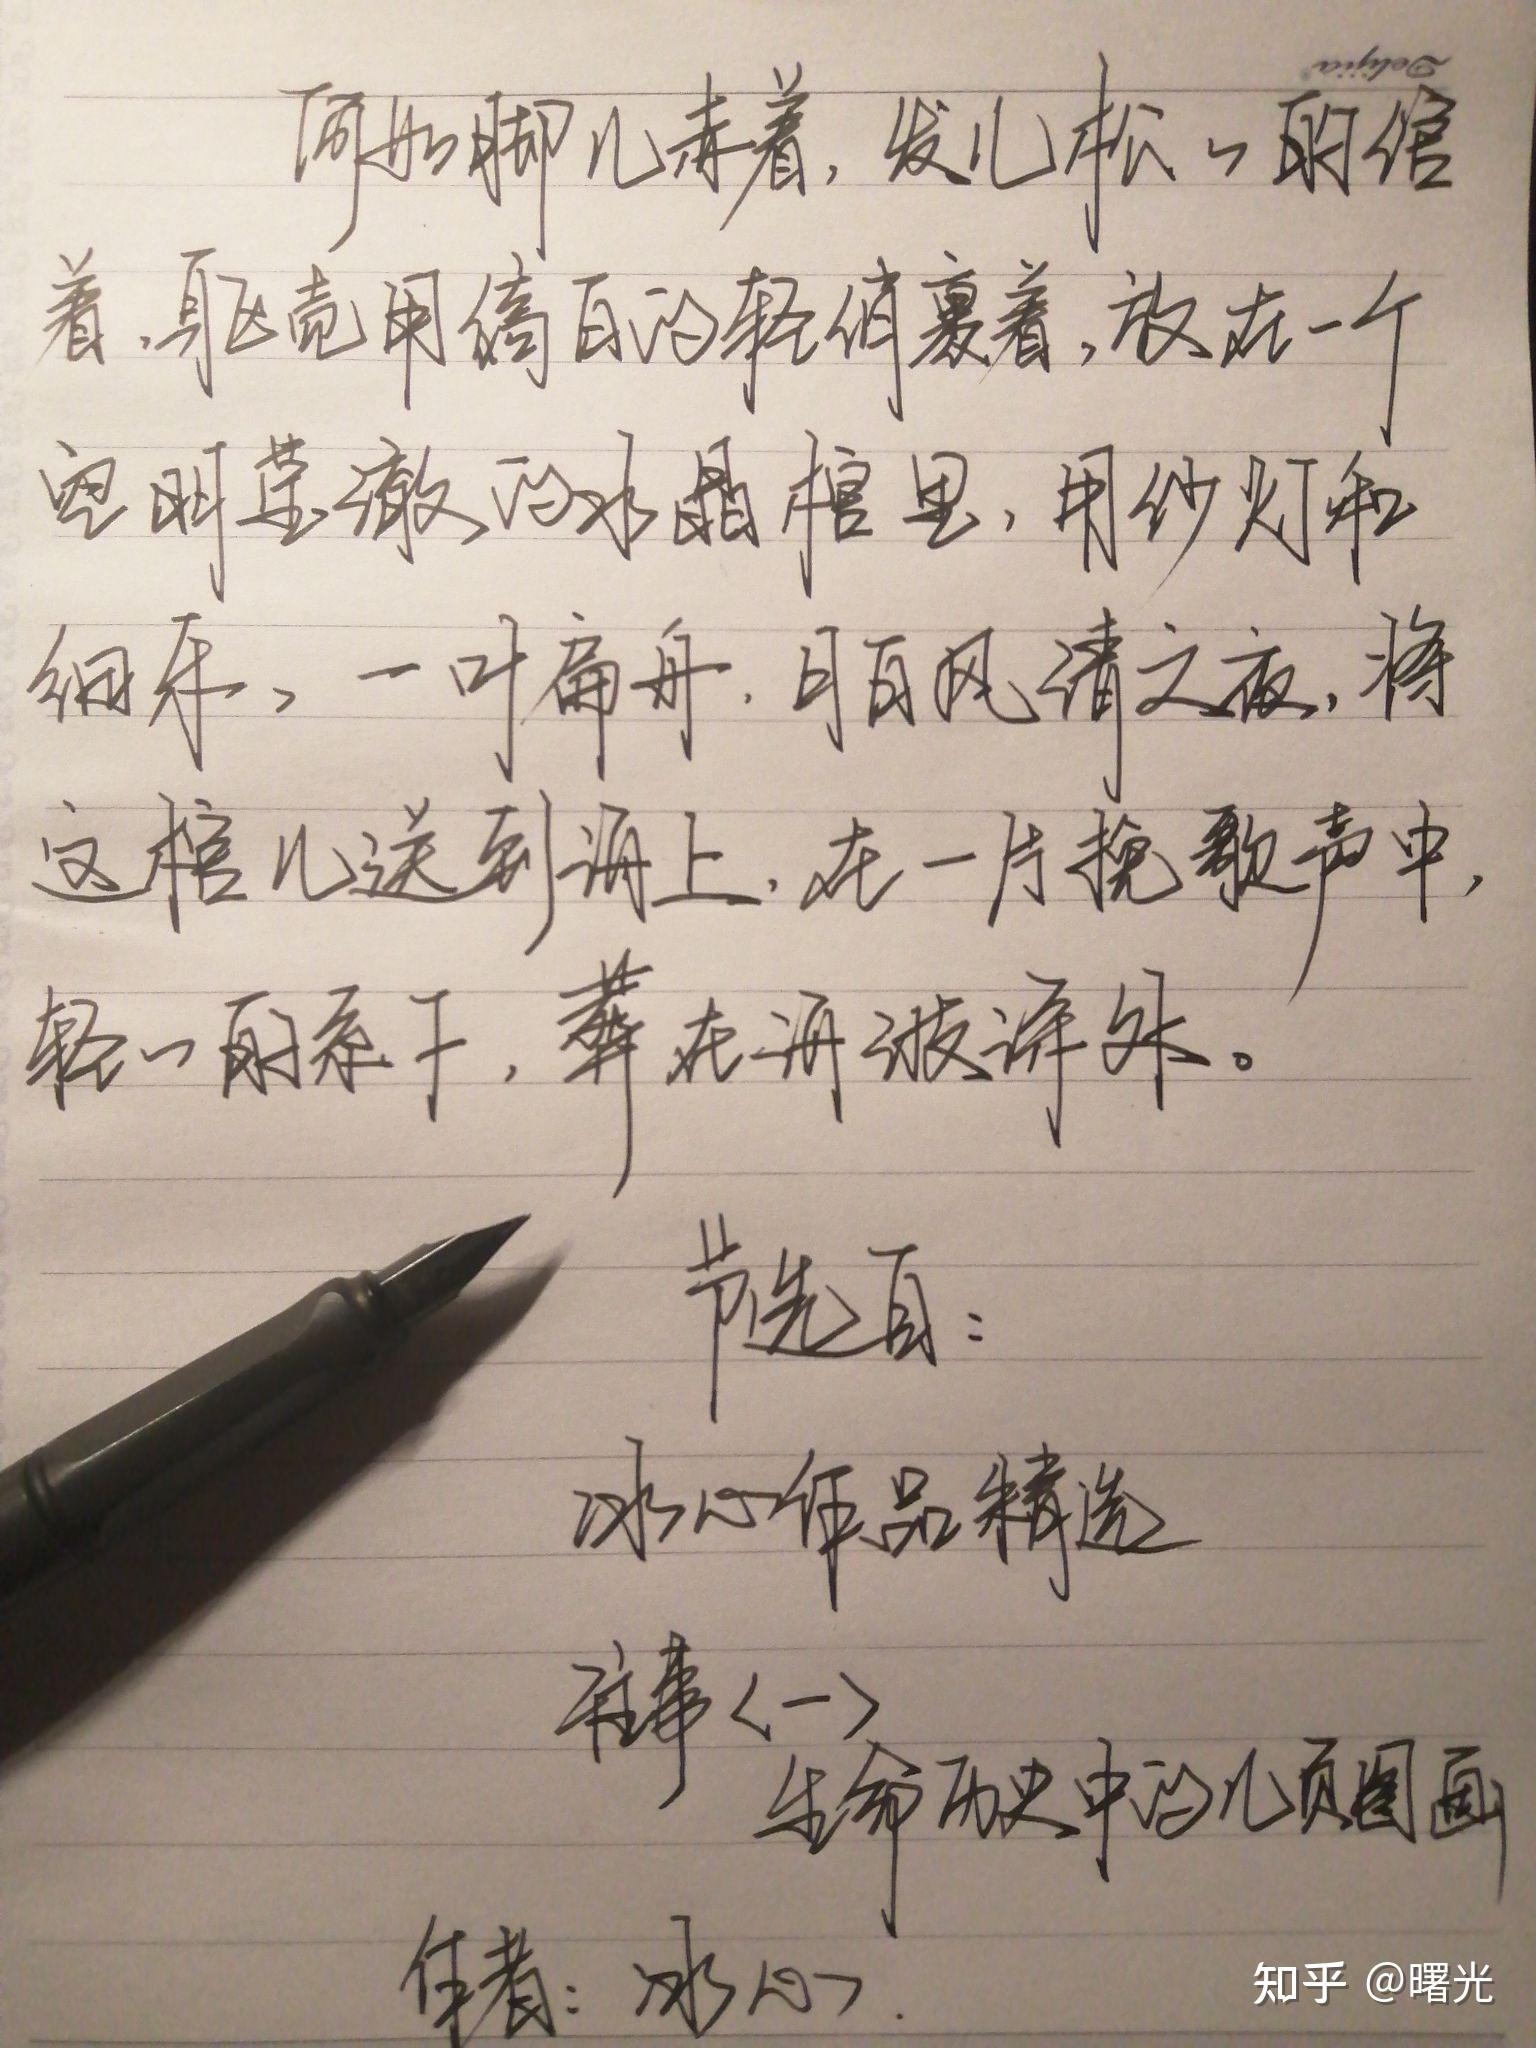 Delijia
何如脚儿赤着，发儿松々的绾
着，躯壳用缟白的轻绡裹着，放在一个
空明莹澈的水晶棺里，用纱灯和
细乐，一叶扁舟，月白风清之夜，将
这棺儿送到海上，在一片挽歌声中，
轻々的系下，葬在海波深处。
节选自：
冰心作品精选
往事〈一〉
生命历史中的几页图画
作者：冰心.
知乎 @曙光